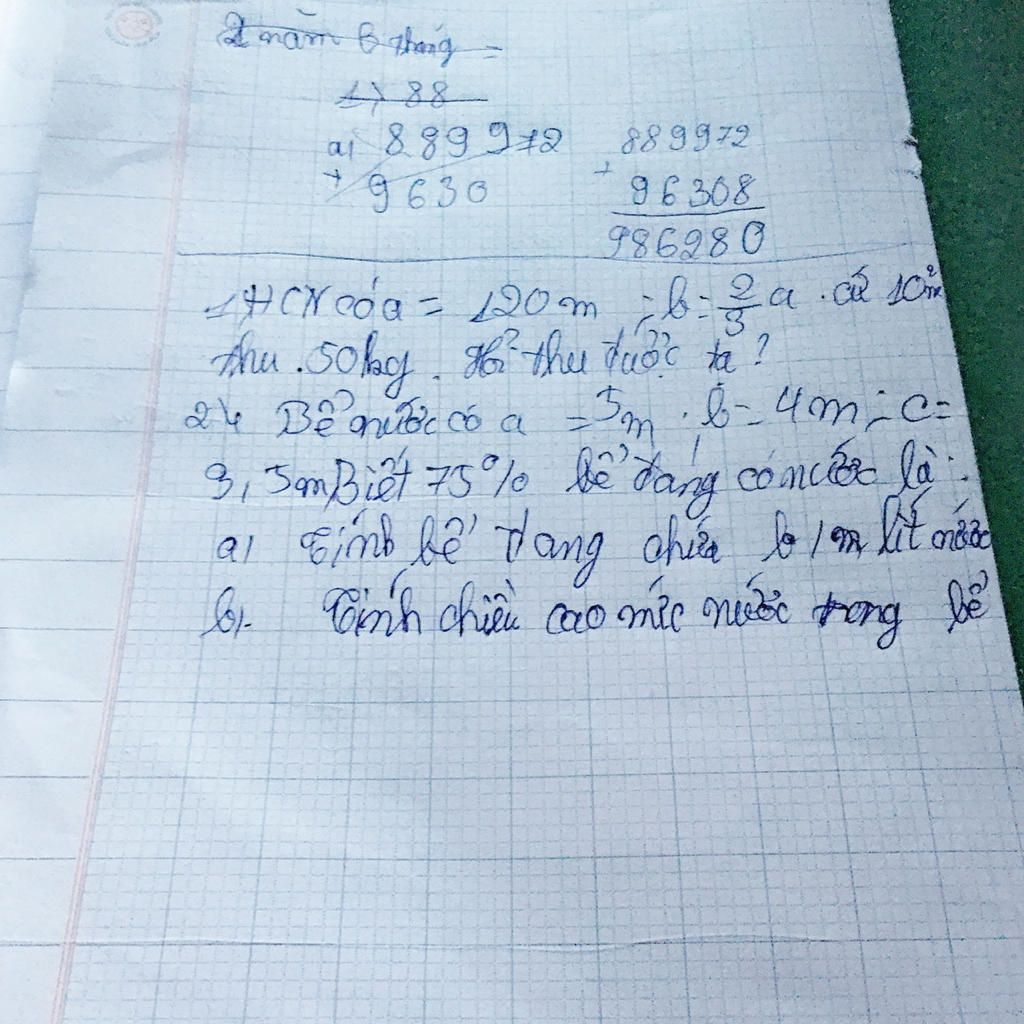 2 năm 6 tháng =
1) 88
a) 889972
+ 9630
889972
+ 96308
986280
1, HCN có a = 120m ; b = 2/3 a . cứ 10m²
thu . 50kg . Hỏi thu được tạ ?
2, Bể nước có a = 5m ; b = 4m ; c =
3,5m Biết 75% bể đáng có nước là :
a) Tính bể đang chứa b/m lít nước
b). Tính chiều cao mức nước trong bể